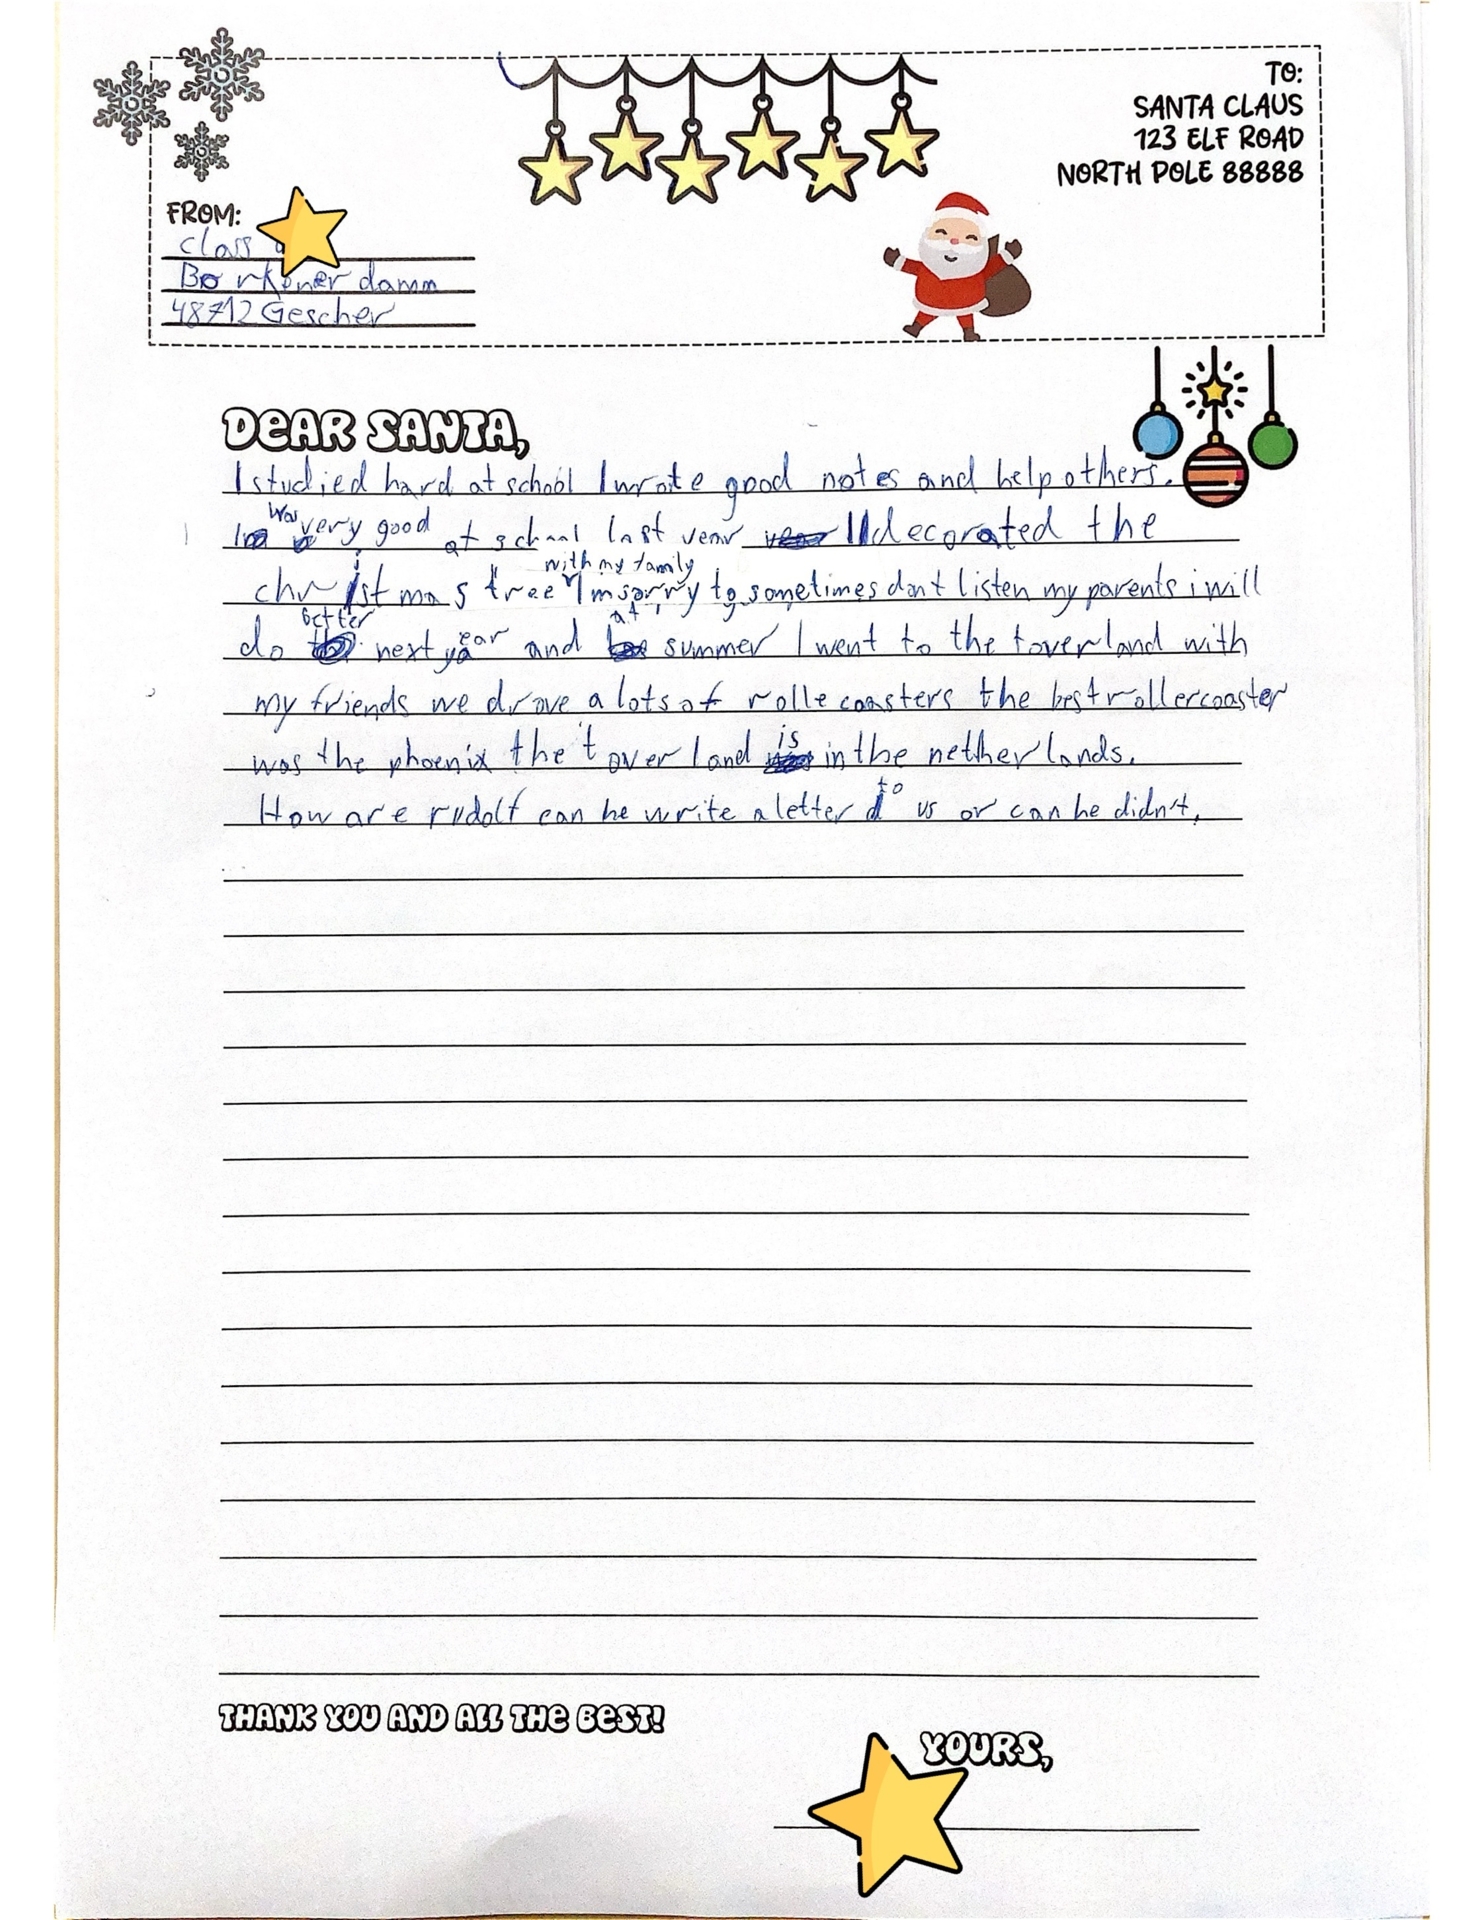 TO:
SANTA CLAUS
123 ELF ROAD
NORTH POLE 88888
FROM:
class
Borkener damm
48712 Gescher
DEAR SANTA,
I studied hard at school I wrote good notes and help others.
I was very good at school last year I decorated the
christmas tree with my family I'm sorry to sometimes don't listen my parents i will
do better next year and at summer I went to the toverland with
my friends we drove a lots of rolle coasters the best rollercoaster
was the phoenix the toverland is in the netherlands.
How are rudolf can he write a letter to us or can he didn't.
THANK YOU AND ALL THE BEST!
YOURS,